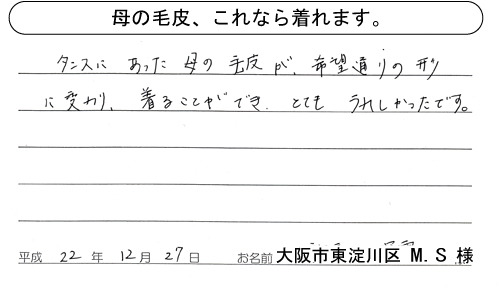 母の毛皮、これなら着れます。
タンスに あった 母の 毛皮が、希望通りの形
に変わり、着ることができ とても うれしかったです。
平成 22 年 12 月 27 日 お名前 大阪市東淀川区 M.S 様